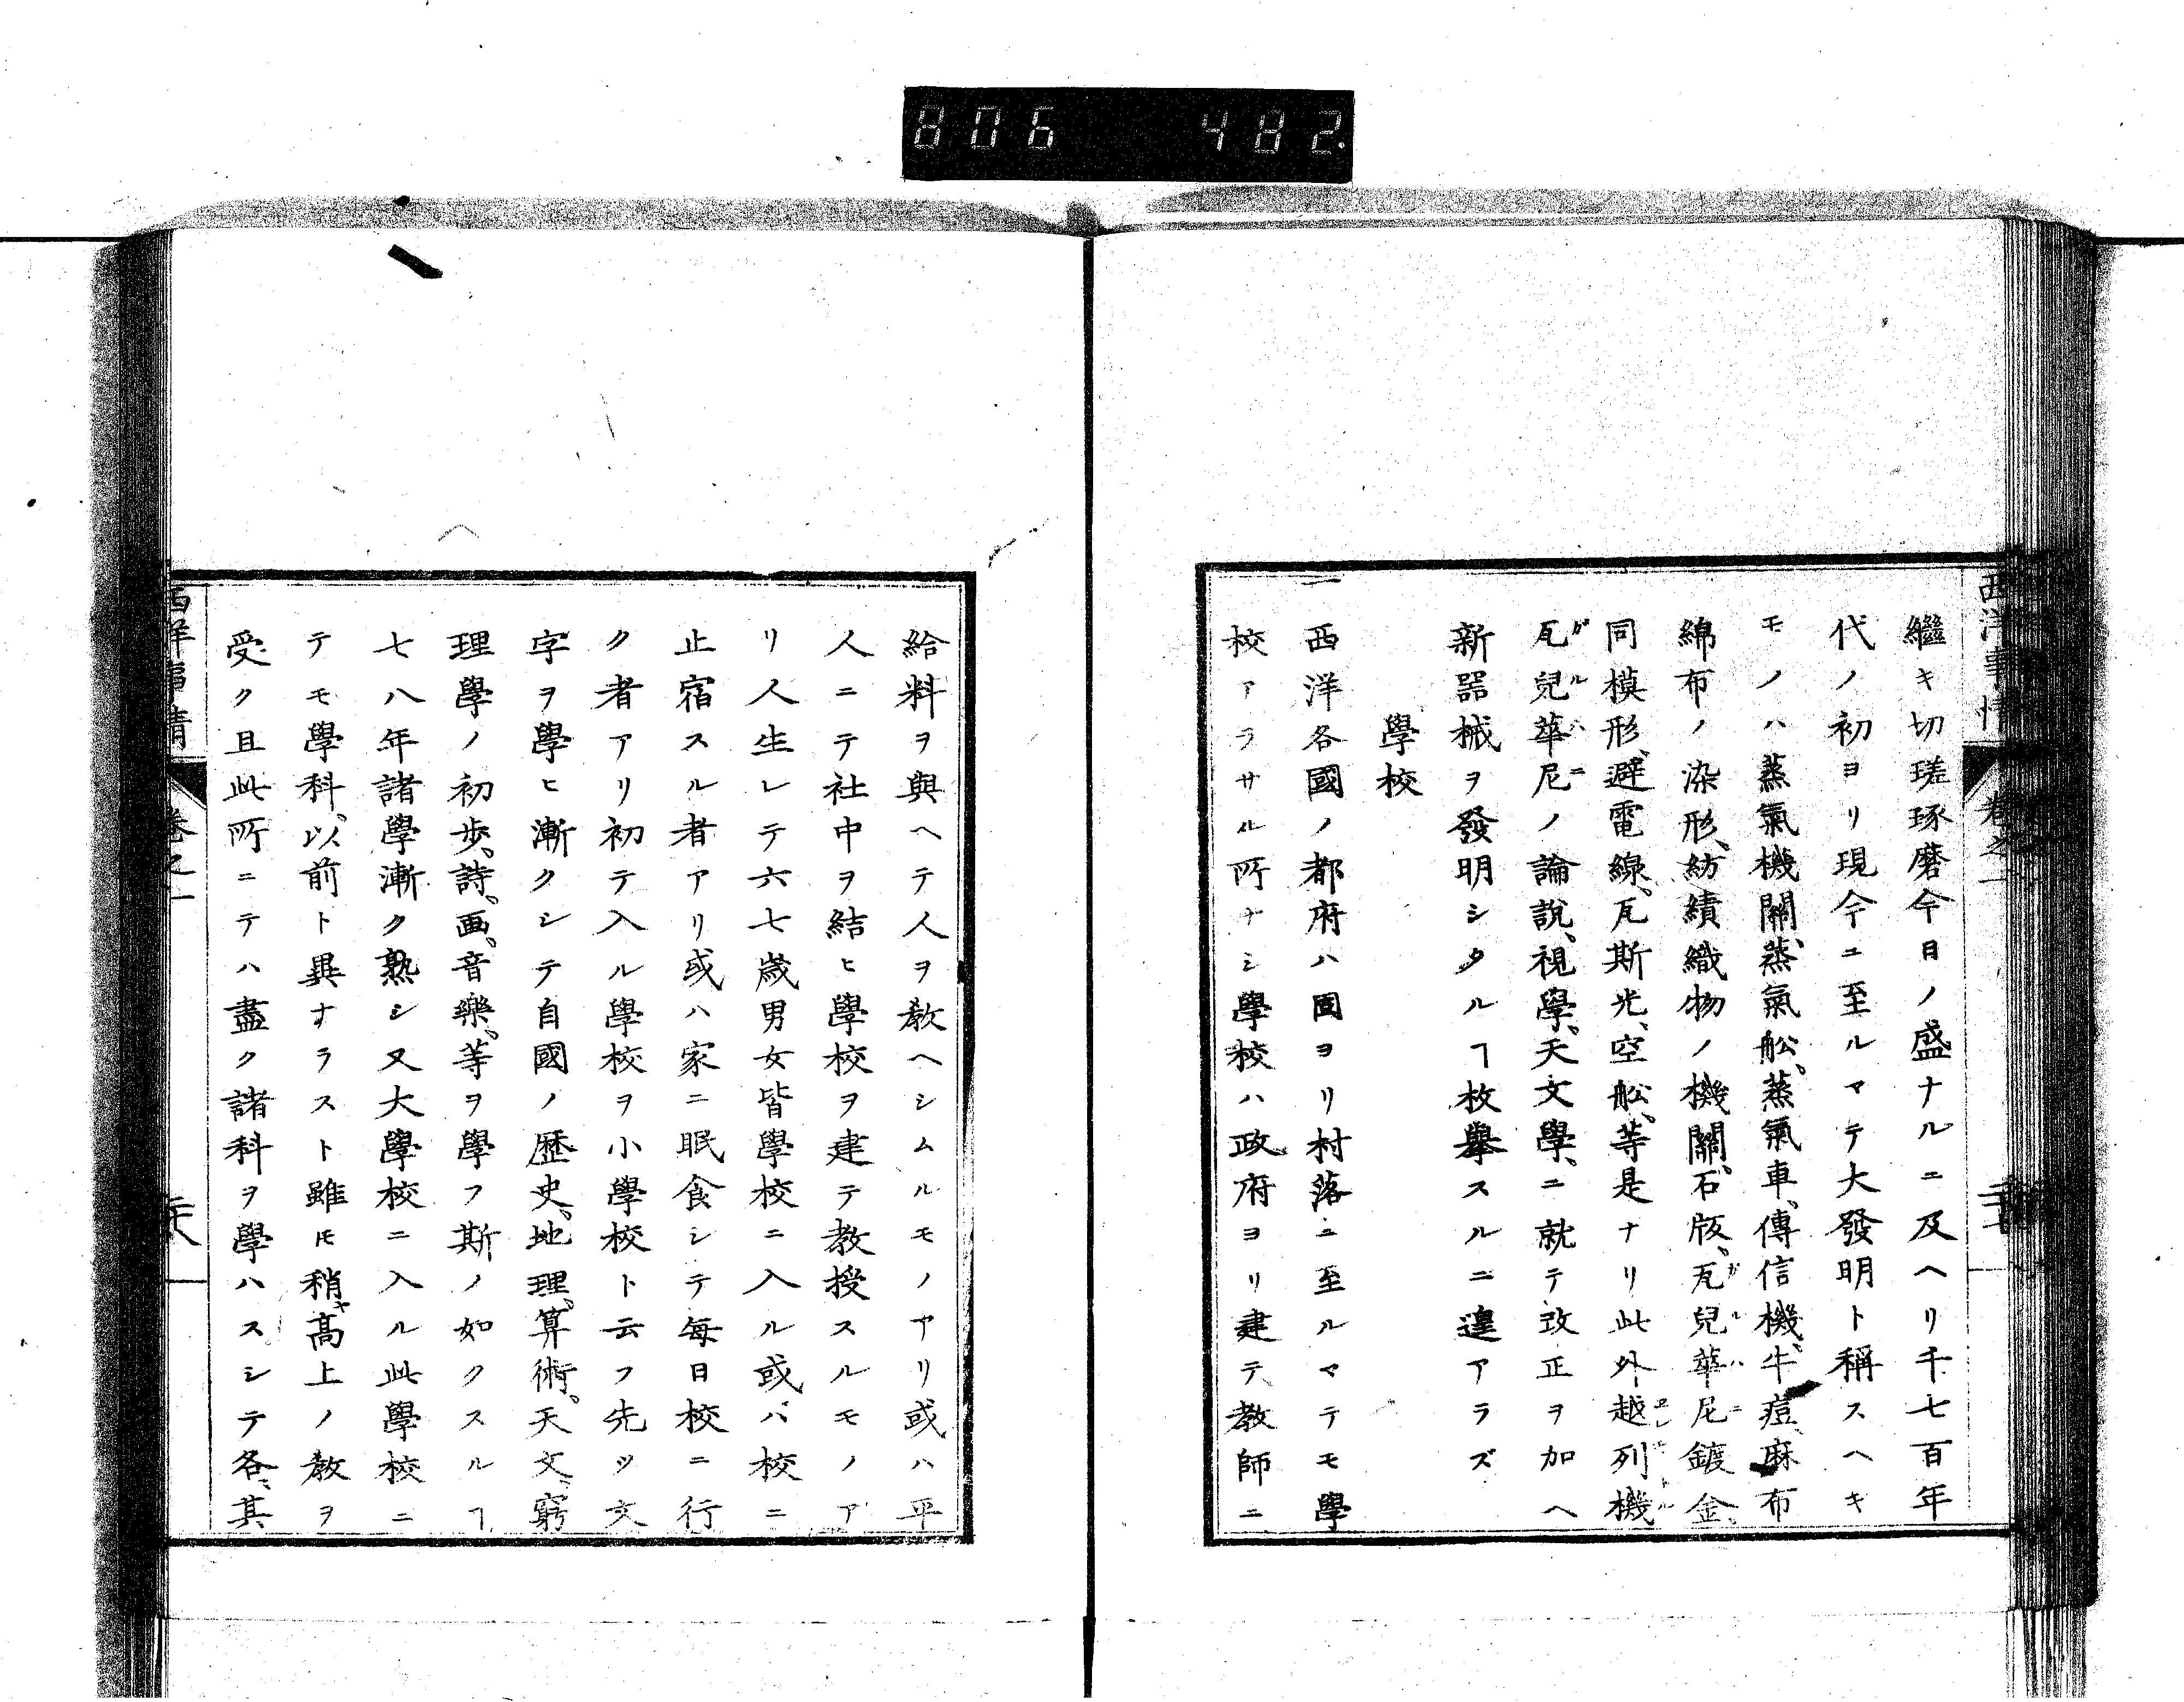 806 482
西洋事情 卷之一
繼キ切瑳琢磨今日ノ盛ナルニ及ヘリ千七百年
代ノ初ヨリ現今ニ至ルマテ大發明ト稱スヘキ
モノハ蒸氣機關、蒸氣舩、蒸氣車、傳信機、牛痘、麻布
綿布ノ染形、紡績織物ノ機關、石版、瓦兒華尼鍍金、
同模形、避電線、瓦斯光、空舩、等是ナリ此外越列機
瓦兒華尼ノ論說、視學、天文學、ニ就テ改正ヲ加ヘ
新器械ヲ發明シタルヿ枚擧スルニ遑アラズ
學校
一西洋各國ノ都府ハ固ヨリ村落ニ至ルマテモ學
校アラサル所ナシ學校ハ政府ヨリ建テ教師ニ
給料ヲ與ヘテ人ヲ教ヘシムルモノアリ或ハ平
人ニテ社中ヲ結ヒ學校ヲ建テ教授スルモノア
リ人生レテ六七歲男女皆學校ニ入ル或ハ校ニ
止宿スル者アリ或ハ家ニ眠食シテ每日校ニ行
ク者アリ初テ入ル學校ヲ小學校ト云フ先ツ文
字ヲ學ヒ漸クシテ自國ノ歷史、地理、算術、天文、窮
理學ノ初步、詩、画、音樂、等ヲ學フ斯ノ如クスルヿ
七八年諸學漸ク熟シ又大學校ニ入ル此學校ニ
テモ學科、以前ト異ナラスト雖𪜈稍ヤ高上ノ教ヲ
受ク且此所ニテハ盡ク諸科ヲ學ハスシテ各、其
西洋事情 卷之一 二十八